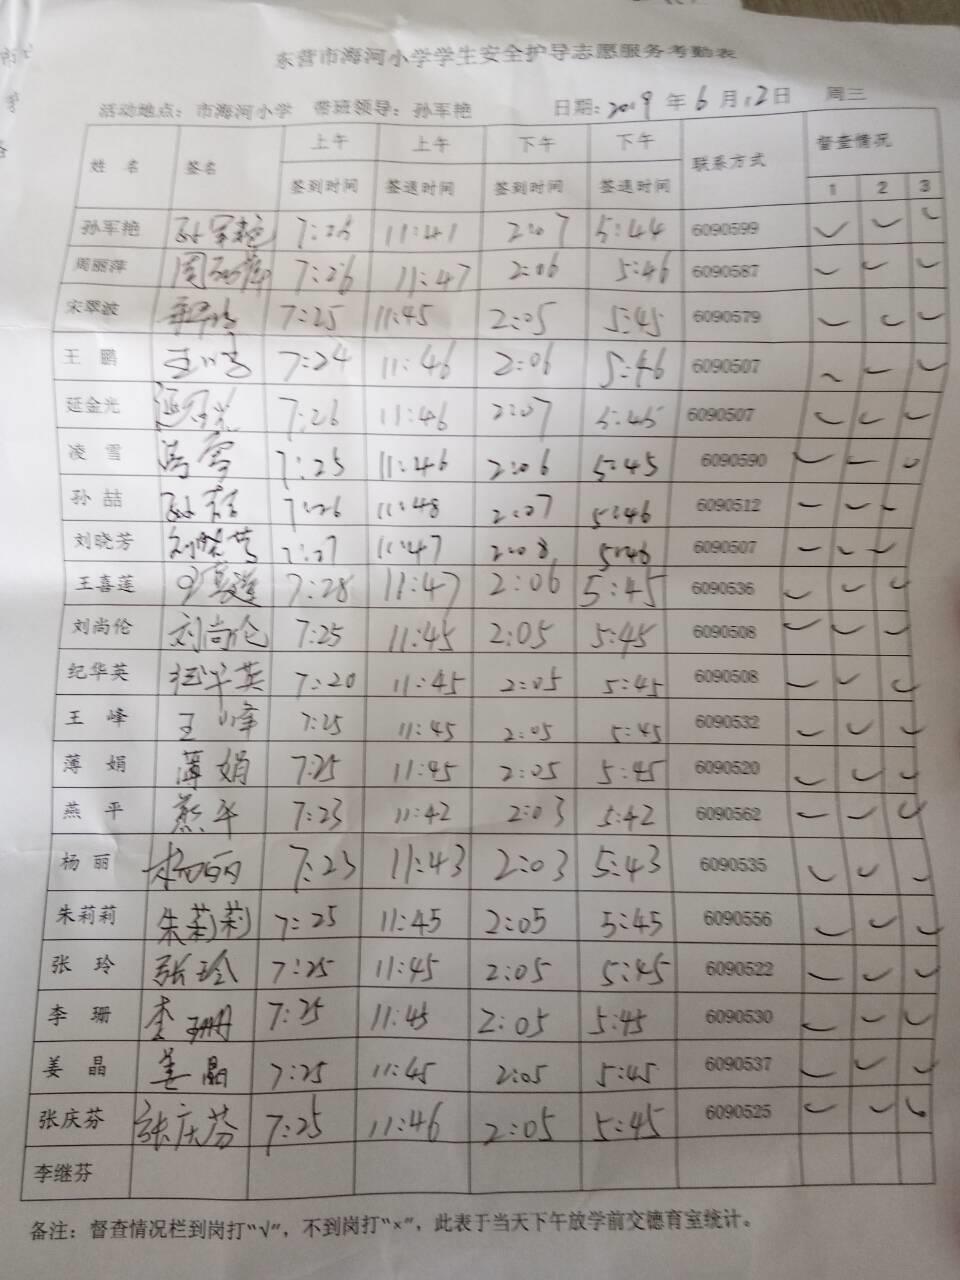 东营市海河小学学生安全护导志愿服务考勤表
活动地点：市海河小学 带班领导：孙军艳 日期：2019年6月12日 周三
姓 名 签名 上午 上午 下午 下午 联系方式 督查情况
签到时间 签退时间 签到时间 签退时间 1 2 3
孙军艳 孙军艳 7:26 11:41 2:07 5:44 6090599 ✓ ✓ ✓
周丽萍 周丽萍 7:26 11:47 2:06 5:46 6090587 ✓ ✓ ✓
宋翠波 7:25 11:45 2:05 5:45 6090579 ✓ ✓ ✓
王 鹏 王鹏 7:24 11:46 2:06 5:46 6090507 ✓ ✓ ✓
延金光 延金光 7:26 11:46 2:07 5:45 6090507 ✓ ✓ ✓
凌 雪 凌雪 7:25 11:46 2:06 5:45 6090590 ✓ ✓ ✓
孙 喆 孙喆 7:26 11:48 2:07 5:46 6090512 ✓ ✓ ✓
刘晓芳 刘晓芳 7:27 11:47 2:08 5:46 6090507 ✓ ✓ ✓
王喜莲 王喜莲 7:28 11:47 2:06 5:45 6090536 ✓ ✓ ✓
刘尚伦 刘尚伦 7:25 11:45 2:05 5:45 6090508 ✓ ✓ ✓
纪华英 纪华英 7:20 11:45 2:05 5:45 6090508 ✓ ✓ ✓
王 峰 王峰 7:25 11:45 2:05 5:45 6090532 ✓ ✓ ✓
薄 娟 薄娟 7:25 11:45 2:05 5:45 6090520 ✓ ✓ ✓
燕 平 燕平 7:23 11:42 2:03 5:42 6090562 ✓ ✓ ✓
杨 丽 杨丽 7:23 11:43 2:03 5:43 6090535 ✓ ✓ ✓
朱莉莉 朱莉莉 7:25 11:45 2:05 5:45 6090556 ✓ ✓ ✓
张 玲 张玲 7:25 11:45 2:05 5:45 6090522 ✓ ✓ ✓
李 珊 李珊 7:25 11:45 2:05 5:45 6090530 ✓ ✓ ✓
姜 晶 姜晶 7:25 11:45 2:05 5:45 6090537 ✓ ✓ ✓
张庆芬 张庆芬 7:25 11:46 2:05 5:45 6090525 ✓ ✓ ✓
李继芬
备注：督查情况栏到岗打“√”，不到岗打“×”，此表于当天下午放学前交德育室统计。